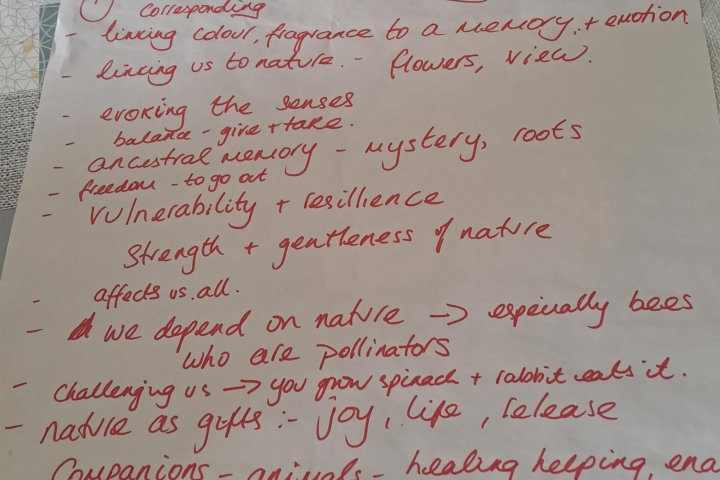 ① corresponding
- linking colour, fragrance to a memory, + emotion
- linking us to nature. - flowers, view.
- evoking the senses
- balance - give + take.
- ancestral memory - mystery, roots
- freedom - to go out
- vulnerability + resillience
strength + gentleness of nature
- affects us all.
- we depend on nature -> especially bees
who are pollinators
- challenging us -> you grow spinach + rabbit eats it.
- nature as gifts :- joy, life, release
Companions - animals - healing helping, ena